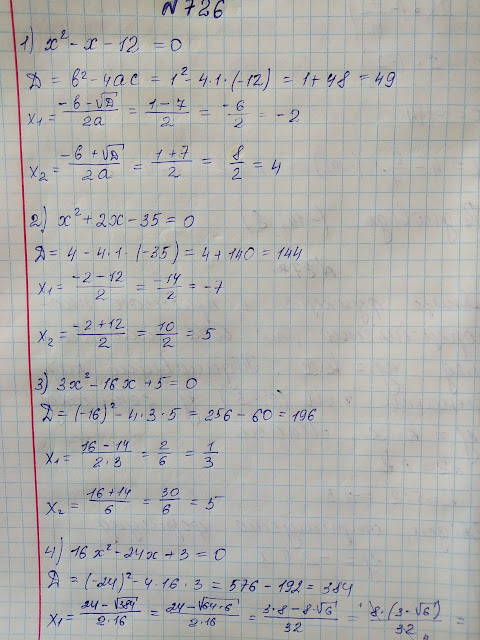 №726
1) x² - x - 12 = 0
D = b² - 4ac = 1² - 4·1·(-12) = 1 + 48 = 49
x₁ = (-b - √D)/2a = (1 - 7)/2 = -6/2 = -2
x₂ = (-b + √D)/2a = (1 + 7)/2 = 8/2 = 4
2) x² + 2x - 35 = 0
D = 4 - 4·1·(-35) = 4 + 140 = 144
x₁ = (-2 - 12)/2 = -14/2 = -7
x₂ = (-2 + 12)/2 = 10/2 = 5
3) 3x² - 16x + 5 = 0
D = (-16)² - 4·3·5 = 256 - 60 = 196
x₁ = (16 - 14)/2·3 = 2/6 = 1/3
x₂ = (16 + 14)/6 = 30/6 = 5
4) 16x² - 24x + 3 = 0
D = (-24)² - 4·16·3 = 576 - 192 = 384
x₁ = (24 - √384)/2·16 = (24 - √64·6)/2·16 = (3·8 - 8·√6)/32 = 8·(3 - √6)/32 =